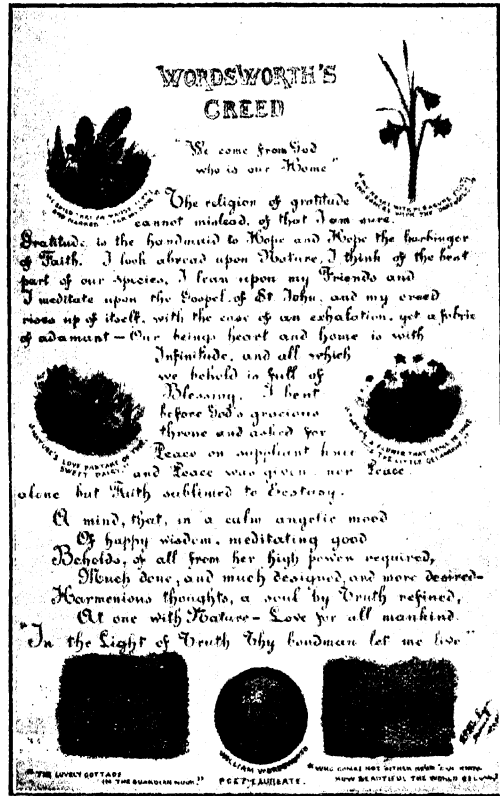 WORDSWORTH'S
CREED
"We come from God
who is our Home"
The religion of gratitude
cannot mislead, of that I am sure.
Gratitude is the handmaid to Hope and Hope the harbinger
of Faith. I look abroad upon Nature, I think of the best
part of our species, I lean upon my Friends and
I meditate upon the Gospel of St John, and my creed
rises up of itself, with the ease of an exhalation, yet a fabric
of adamant – Our beings heart and home is with
Infinitude, and all which
we behold is full of
Blessing. I bent
before God's gracious
throne and asked for
Peace on suppliant knee
and Peace was given, nor Peace
alone but Faith sublimed to Ecstasy.
"NATURE'S LOVE PARTAKE OF THEE
SWEET DAISY."
"THERE'S A FLOWER THAT SHALL BE MINE,
'TIS THE LITTLE CELANDINE."
A mind, that, in a calm angelic mood
Of happy wisdom, meditating good
Beholds, of all from her high power required,
Much done, and much designed, and more desired–
Harmonious thoughts, a soul by Truth refined,
At one with Nature – Love for all mankind.
"In the Light of Truth Thy bondman let me live"
"THE LOVELY COTTAGE
IN THE GUARDIAN NOOK."
WILLIAM WORDSWORTH
POET LAUREATE.
"WHO COMES NOT HITHER NE'ER CAN KNOW
HOW BEAUTIFUL THE WORLD BELOW"